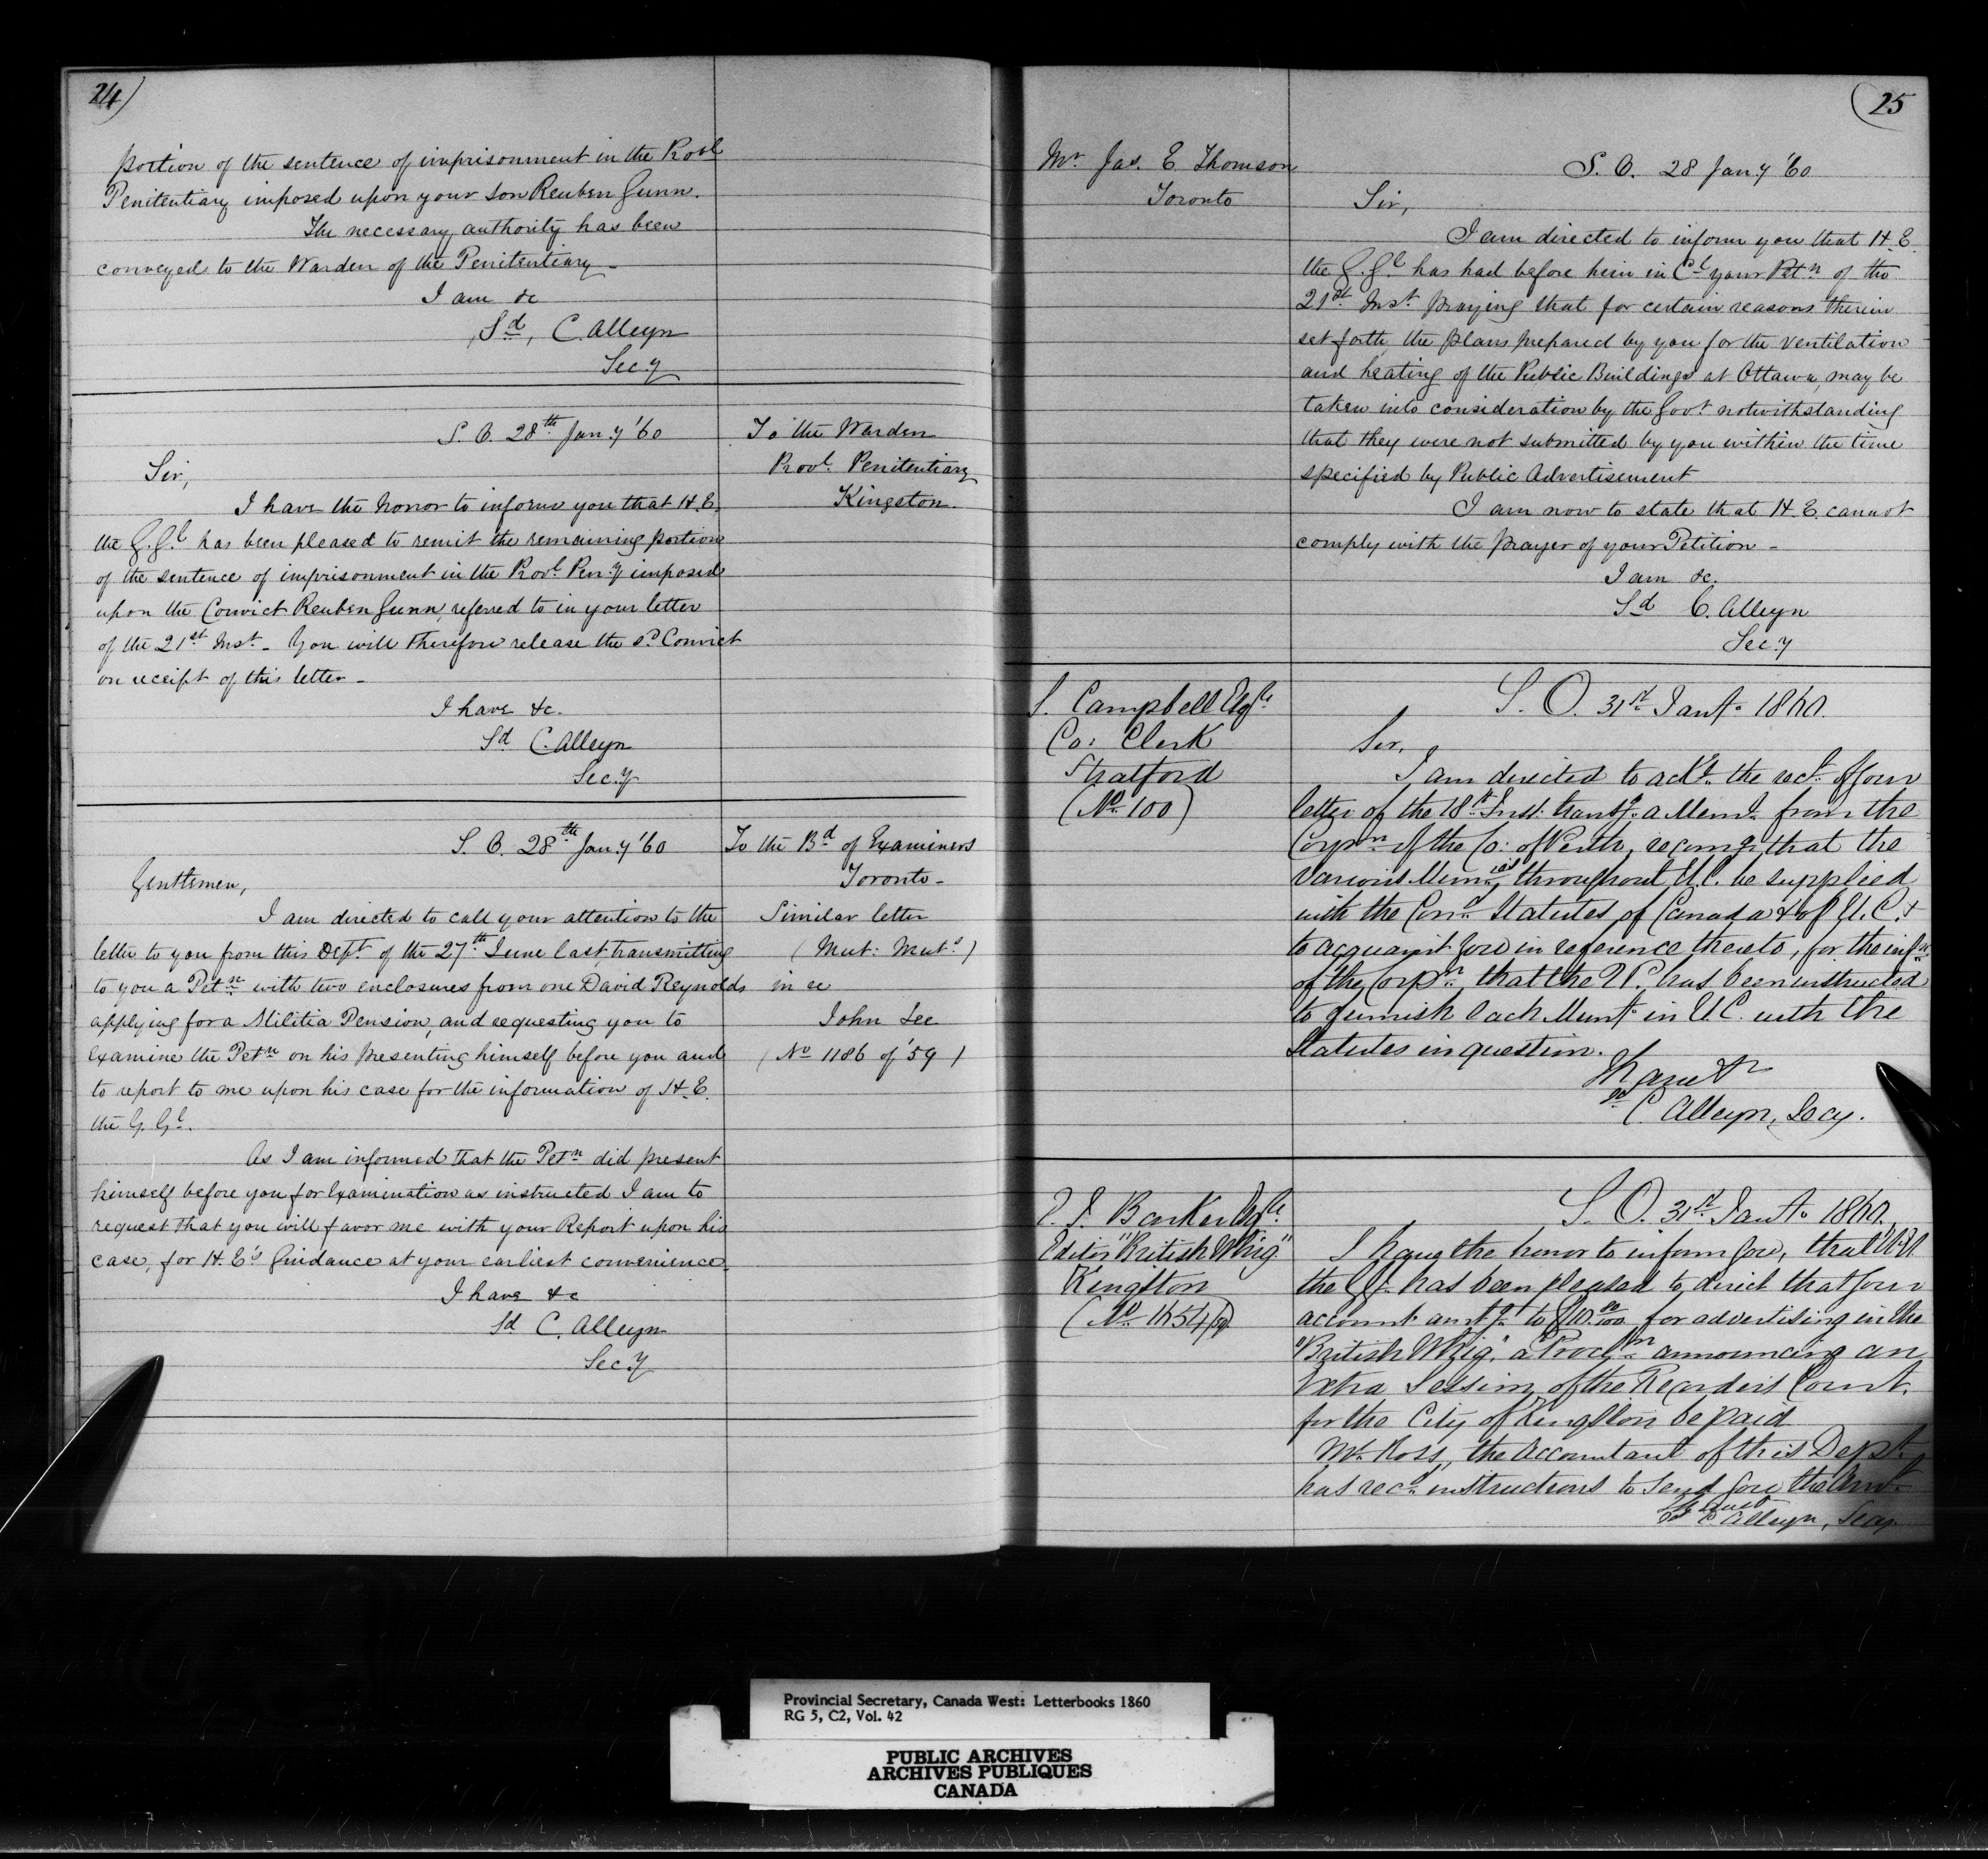 24)
portion of the sentence of imprisonment in the Provl
Penitentiary imposed upon your son Reuben Gunn.
The necessary authority has been
conveyed to the Warden of the Penitentiary_
I am &c
Sd, C. Alleyn
Secy
S. O. 28th Jany '60
To the Warden
Provl. Penitentiary
Kingston.
Sir,
I have the honor to inform you that H.E.
the G. Gl has been pleased to remit the remaining portion
of the sentence of imprisonment in the Provl. Peny imposed
upon the Convict Reuben Gunn, referred to in your letter
of the 21st Inst_ You will therefore release the sd. Convict
on receipt of this letter_
I have &c.
Sd C. Alleyn
Secy
S. O. 28th Jany '60
To the Bd of Examiners
Toronto_
Similar letter
(Mut: Mut:s)
in re
John Lee
(No 1186 of '59)
Gentlemen,
I am directed to call your attention to the
letter to you from this Dept. of the 27th June last transmitting
to you a Petn with two enclosures from one David Reynolds
applying for a Militia Pension, and requesting you to
examine the Petn on his presenting himself before you and
to report to me upon his case for the information of H.E.
the G. Gl.
As I am informed that the Petn did present
himself before you for Examination as instructed I am to
request that you will favor me with your Report upon his
case, for H.E's Guidance at your earliest convenience_
I have &c
Sd C. Alleyn
Secy
(25
Mr Jas. E Thomson
Toronto
S. O. 28 Jany '60
Sir,
I am directed to inform you that H.E.
the G. Gl has had before him in Cl your Petn of the
21st Inst. praying that for certain reasons therein
set forth the plans prepared by you for the ventilation
and heating of the Public Buildings at Ottawa, may be
taken into consideration by the Govt notwithstanding
that they were not submitted by you within the time
specified by Public Advertisement
I am now to state that H.E. cannot
comply with the prayer of your Petition_
I am &c.
Sd C. Alleyn
Secy
S. Campbell Esqre
Co: Clerk
Stratford
(No 100)
S. O. 31st Jany. 1860.
Sir,
I am directed to acke. the rect. of your
letter of the 18th Inst: transg. a Meml. from the
Corpn of the Co: of Perth, recomg. that the
various Munies, throughout U.C. be supplied
with the Cond. Statutes of Canada & of U.C. &
to acquaint you in reference thereto, for the infn
of the Corpn, that the QP. has been instructed
to furnish each Muny. in U.C. with the
Statutes in question.
I have &c
sd C. Alleyn, Secy.
Barker Esqre.
Editor "British Whig"
Kingston
S. O. 31st Jany. 1860.
I have the honor to inform you, that H.E.
the GG. has been pleased to direct that your
account amtg. to $10.00/100 for advertising in the
"British Whig," a Procln announcing an
Extra Session of the Recorder's Court.
for the City of Kingston be paid
Mr. Ross, the Accountant of this Dept.
has recd. instructions to send you the Amt.
I have &c
Sd C Alleyn, Secy
Provincial Secretary, Canada West: Letterbooks 1860
RG 5, C2, Vol. 42
PUBLIC ARCHIVES
ARCHIVES PUBLIQUES
CANADA